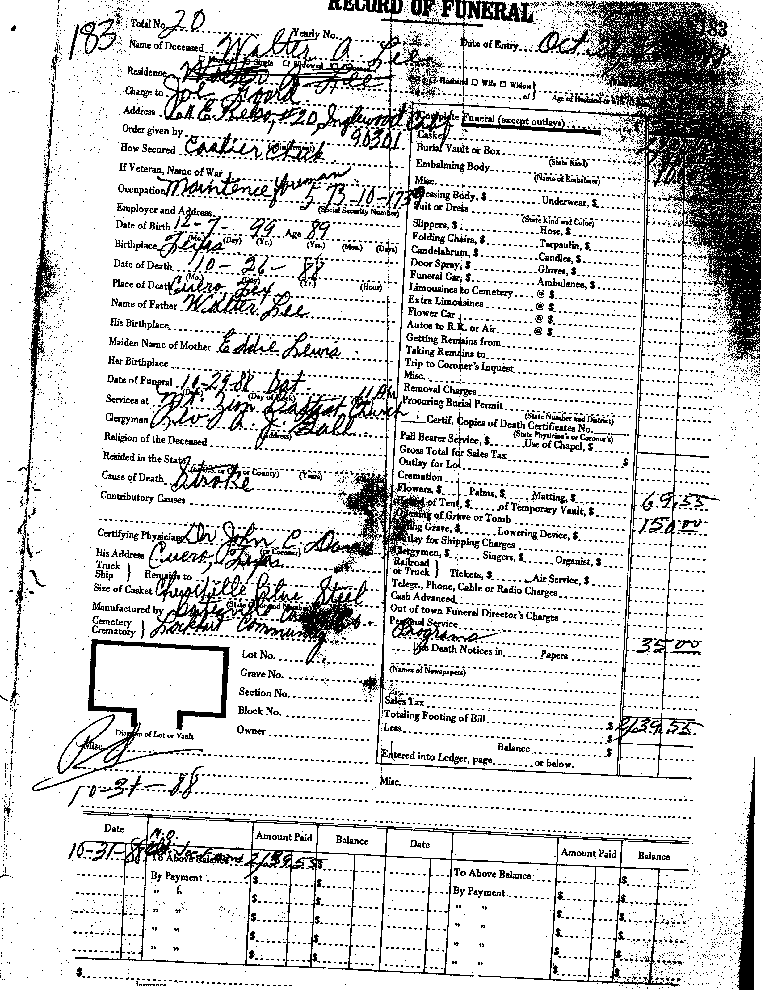 RECORD OF FUNERAL
183
183
Total No. 20 Yearly No.
Name of Deceased Walter A. Lee
Date of Entry Oct.
Residence
Husband Wife Widow of
Charge to Joe
Address #20, Inglewood Calif
Order given by 90301
How Secured Cashier Check
If Veteran, Name of War
Occupation
Employer and Address
(Social Security Number)
Date of Birth 12-7-99 Age 89
(Mo.) (Day) (Yr.) (Yrs.) (Mos.) (Days)
Birthplace Texas
Date of Death 10-26-88
(Hour)
Place of Death Cuero Tex
Name of Father Walter Lee
His Birthplace
Maiden Name of Mother Eddie Lewis
Her Birthplace
Date of Funeral 10-29-88 Sat.
Services at Mt. Zion Baptist Church
Clergyman Rev. A. J.
Religion of the Deceased (Address)
Resided in the State (City or County) (Years)
Cause of Death Stroke
Contributory Causes
Certifying Physician Dr John C. Davis
His Address Cuero, Texas
Truck Ship } Remains to
Size of Casket Blue Steel
Manufactured by
Cemetery Crematory } Lockhart Community
Lot No.
Grave No.
Section No.
Block No.
Owner
Diagram of Lot or Vault
10-31-88
Complete Funeral (except outlays)
Casket
Burial Vault or Box
(State Kind)
Embalming Body
(Name of Embalmer)
Misc.
Dressing Body, $ Underwear, $
Suit or Dress
(State Kind and Color)
Slippers, $ Hose, $
Folding Chairs, $ Tarpaulin, $
Candelabrum, $ Candles, $
Door Spray, $ Gloves, $
Funeral Car, $ Ambulance, $
Limousines to Cemetery @ $
Extra Limousines @ $
Flower Car @ $
Autos to R.R. or Air @ $
Getting Remains from
Taking Remains to
Trip to Coroner's Inquest
Misc.
Removal Charges
Procuring Burial Permit
(State Number and District)
Certif. Copies of Death Certificates No.
(State Physician's or Coroner's)
Pall Bearer Service, $ Use of Chapel, $
Gross Total for Sales Tax $
Outlay for Lot
Cremation
Flowers, $ Palms, $ Matting, $ 69.55
Rental of Tent, $ of Temporary Vault, $
Opening of Grave or Tomb 150.00
Lining Grave, $ Lowering Device, $
Outlay for Shipping Charges
Clergymen, $ Singers, $ Organist, $
Railroad or Truck } Tickets, $ Air Service, $
Telegr., Phone, Cable or Radio Charges
Cash Advanced
Out of town Funeral Director's Charges
Personal Service
Programs 35.00
Death Notices in Papers
(Names of Newspapers)
Sales Tax
Totaling Footing of Bill $ 2139.55
Less $
Balance $
Entered into Ledger, page or below.
Misc.
Date Amount Paid Balance Date Amount Paid Balance
10-31-88 To Above Balance 2139.55 To Above Balance $
By Payment $ By Payment $
" " $ " " $
" " $ " " $
" " $ " " $
" " $ " " $
$